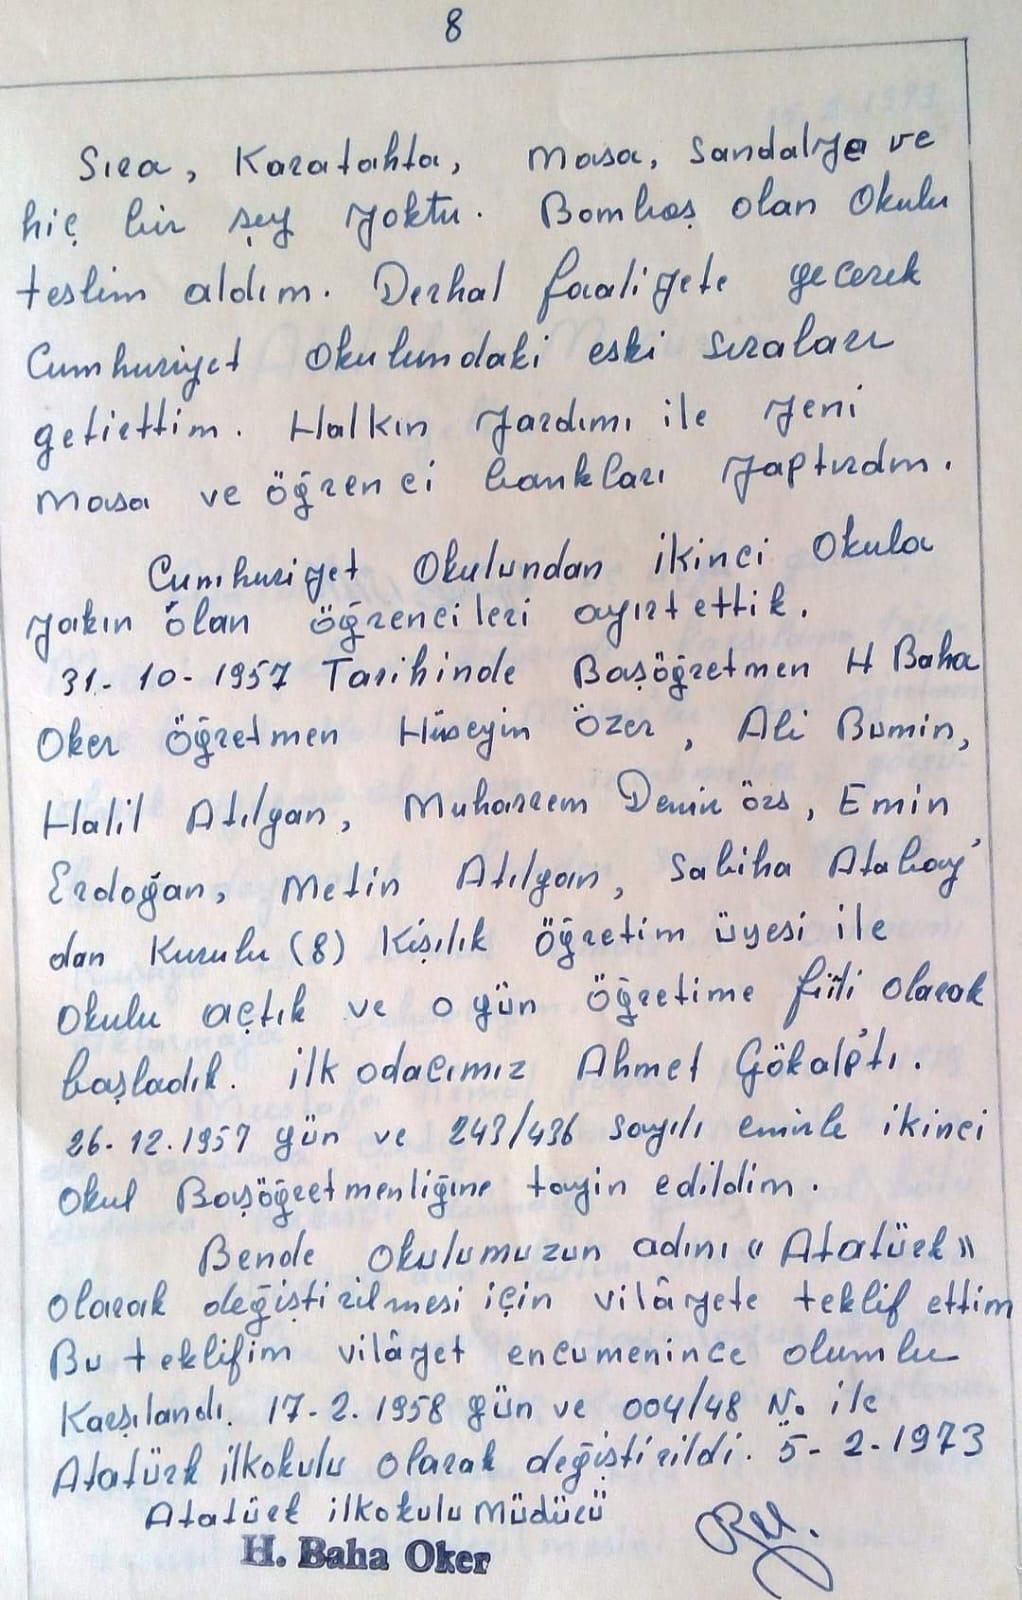 8
Sıra, Karatahta, Masa, Sandalye ve
hiç bir şey yoktu. Bomboş olan Okulu
teslim aldım. Derhal faaliyete gecerek
Cumhuriyet Okulundaki eski sıraları
getirttim. Halkın yardımı ile yeni
Masa ve öğrenci bankları yaptırdım.
Cumhuriyet Okulundan ikinci Okula
yakın olan öğrencileri ayırt ettik.
31-10-1957 Tarihinde Başöğretmen H Baha
Oker öğretmen Hüseyin Özer, Ali Bumin,
Halil Atılgan, Muharrem Demir örs, Emin
Erdoğan, Metin Atılgan, Sabiha Atabay'
dan Kurulu (8) Kişilik öğretim üyesi ile
Okulu açtık ve o gün öğretime fiili olarak
başladık. ilk odacımız Ahmet Gökalp'tı.
26-12.1957 gün ve 243/436 sayılı emirle ikinci
Okul Başöğretmenliğine tayin edildim.
Bende Okulumuzun adını « Atatürk »
Olarak değiştirilmesi için vilâyete teklif ettim
Bu teklifim vilâyet encumenince olumlu
Karşılandı. 17-2.1958 gün ve 004/48 No ile
Atatürk ilkokulu olarak değiştirildi. 5-2-1973
Atatürk ilkokulu Müdürü
H. Baha Oker